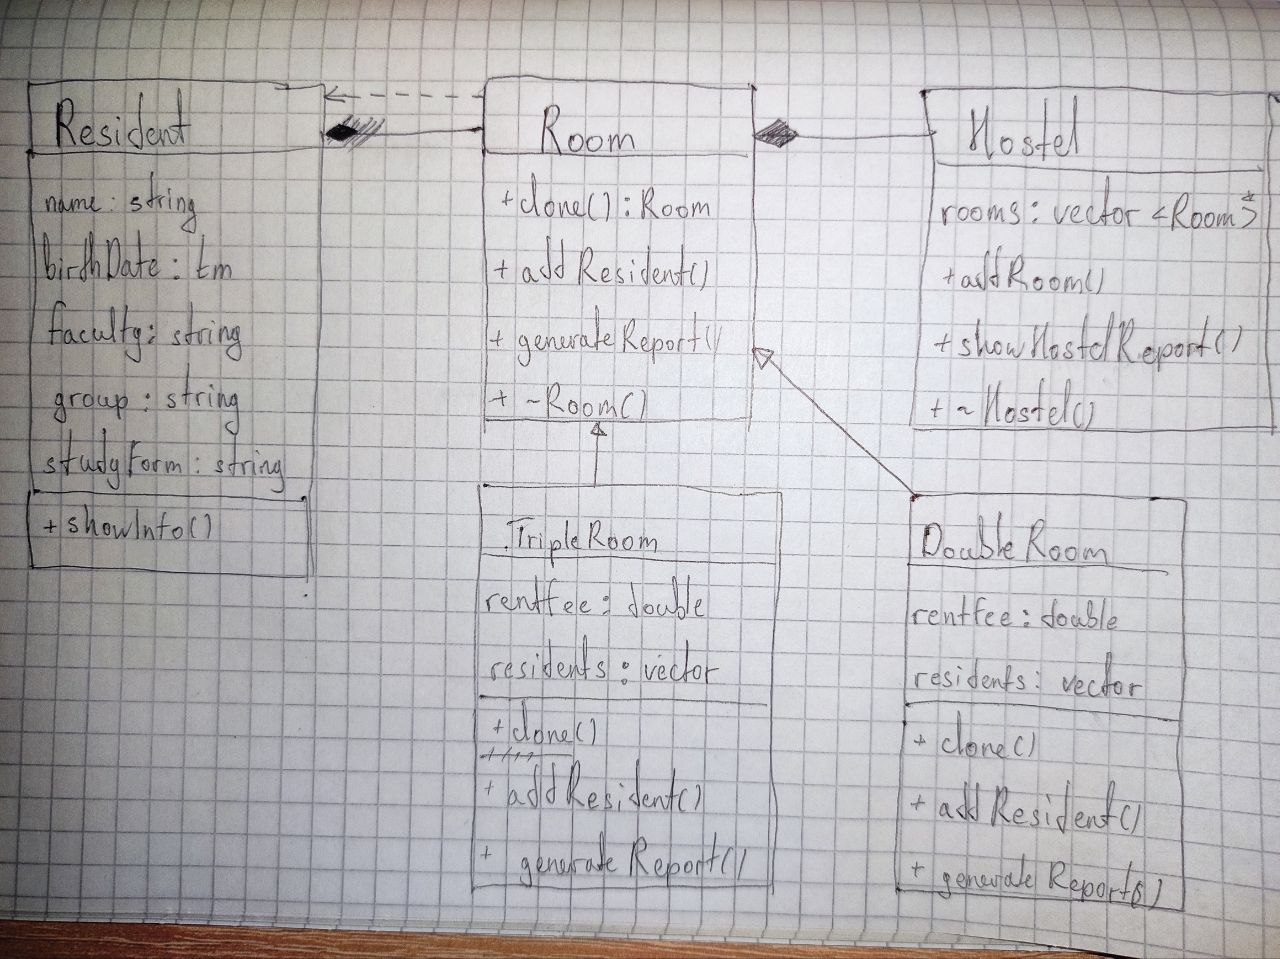 Resident
name: string
birthDate: tm
faculty: string
group: string
studyForm: string
+showInfo()
Room
+clone(): Room
+ addResident()
+ generateReport()
+ ~Room()
Hostel
rooms: vector <Room*>
+addRoom()
+showHostelReport()
+ ~Hostel()
TripleRoom
rentfee: double
residents: vector
+clone()
+ addResident()
+ generateReport()
DoubleRoom
rentfee: double
residents: vector
+ clone()
+ addResident()
+ generateReport()